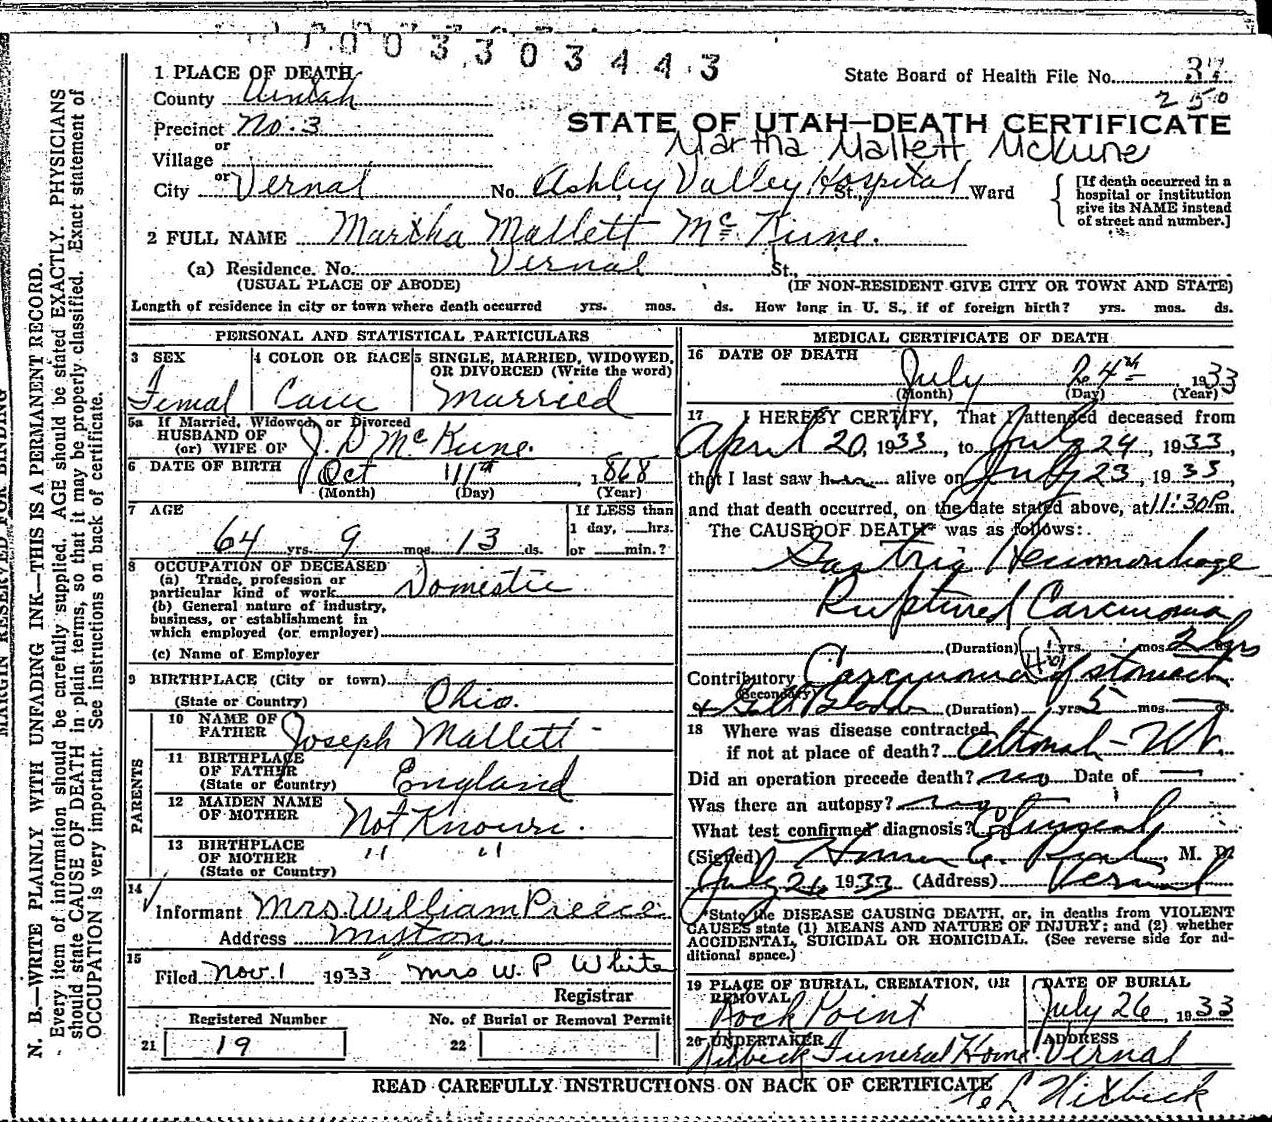 0003303443
1 PLACE OF DEATH
State Board of Health File No. 37
County Uintah
250
Precinct No. 3
STATE OF UTAH—DEATH CERTIFICATE
or
Martha Mallett McKune
Village
City or Vernal No. Ashley Valley Hospital St., Ward
[If death occurred in a hospital or institution give its NAME instead of street and number.]
2 FULL NAME Martha Mallett McKune.
(a) Residence. No. Vernal St.,
(USUAL PLACE OF ABODE) (IF NON-RESIDENT GIVE CITY OR TOWN AND STATE)
Length of residence in city or town where death occurred yrs. mos. ds. How long in U. S., if of foreign birth? yrs. mos. ds.
PERSONAL AND STATISTICAL PARTICULARS
3 SEX 4 COLOR OR RACE 5 SINGLE, MARRIED, WIDOWED, OR DIVORCED (Write the word)
Femal Cauc Married
5a If Married, Widowed, or Divorced
HUSBAND OF
(or) WIFE OF J. D McKune.
6 DATE OF BIRTH Oct 11th, 1868
(Month) (Day) (Year)
7 AGE If LESS than
64 yrs. 9 mos. 13 ds. 1 day, hrs.
or min.?
8 OCCUPATION OF DECEASED
(a) Trade, profession or
particular kind of work Domestic
(b) General nature of industry,
business, or establishment in
which employed (or employer)
(c) Name of Employer
9 BIRTHPLACE (City or town)
(State or Country) Ohio.
PARENTS
10 NAME OF FATHER Joseph Mallett
11 BIRTHPLACE OF FATHER England
(State or Country)
12 MAIDEN NAME OF MOTHER Not Known.
13 BIRTHPLACE OF MOTHER " "
(State or Country)
14
Informant Mrs. William Preece
Address
15
Filed Nov. 1 1933 Mrs W. P White
Registrar
Registered Number No. of Burial or Removal Permit
21 19 22
MEDICAL CERTIFICATE OF DEATH
16 DATE OF DEATH
July 24th 1933
(Month) (Day) (Year)
17 I HEREBY CERTIFY, That I attended deceased from
April 20, 1933, to July 24, 1933,
that I last saw her alive on July 23, 1933,
and that death occurred, on the date stated above, at 11:30 P.m.
The CAUSE OF DEATH* was as follows:
Gastric Hemorrhage
Ruptured Carcinoma
(Duration) yrs. mos.
Contributory Carcinoma of stomach
(Secondary)
& Gall Bladder (Duration) yrs 5 mos — ds.
18 Where was disease contracted
if not at place of death? Altonah – Ut.
Did an operation precede death? no Date of —
Was there an autopsy? no
What test confirmed diagnosis? Clinical
(Signed) Homer E. , M. D.
July 26 1933 (Address) Vernal
*State the DISEASE CAUSING DEATH, or, in deaths from VIOLENT
CAUSES state (1) MEANS AND NATURE OF INJURY; and (2) whether
ACCIDENTAL, SUICIDAL OR HOMICIDAL. (See reverse side for ad-
ditional space.)
19 PLACE OF BURIAL, CREMATION, OR REMOVAL DATE OF BURIAL
Rock Point July 26, 1933
20 UNDERTAKER ADDRESS
Hilbeck Funeral Home. Vernal
READ CAREFULLY INSTRUCTIONS ON BACK OF CERTIFICATE
MARGIN RESERVED FOR BINDING
N. B.—WRITE PLAINLY WITH UNFADING INK—THIS IS A PERMANENT RECORD.
Every item of information should be carefully supplied. AGE should be stated EXACTLY. PHYSICIANS
should state CAUSE OF DEATH in plain terms, so that it may be properly classified. Exact statement of
OCCUPATION is very important. See instructions on back of certificate.